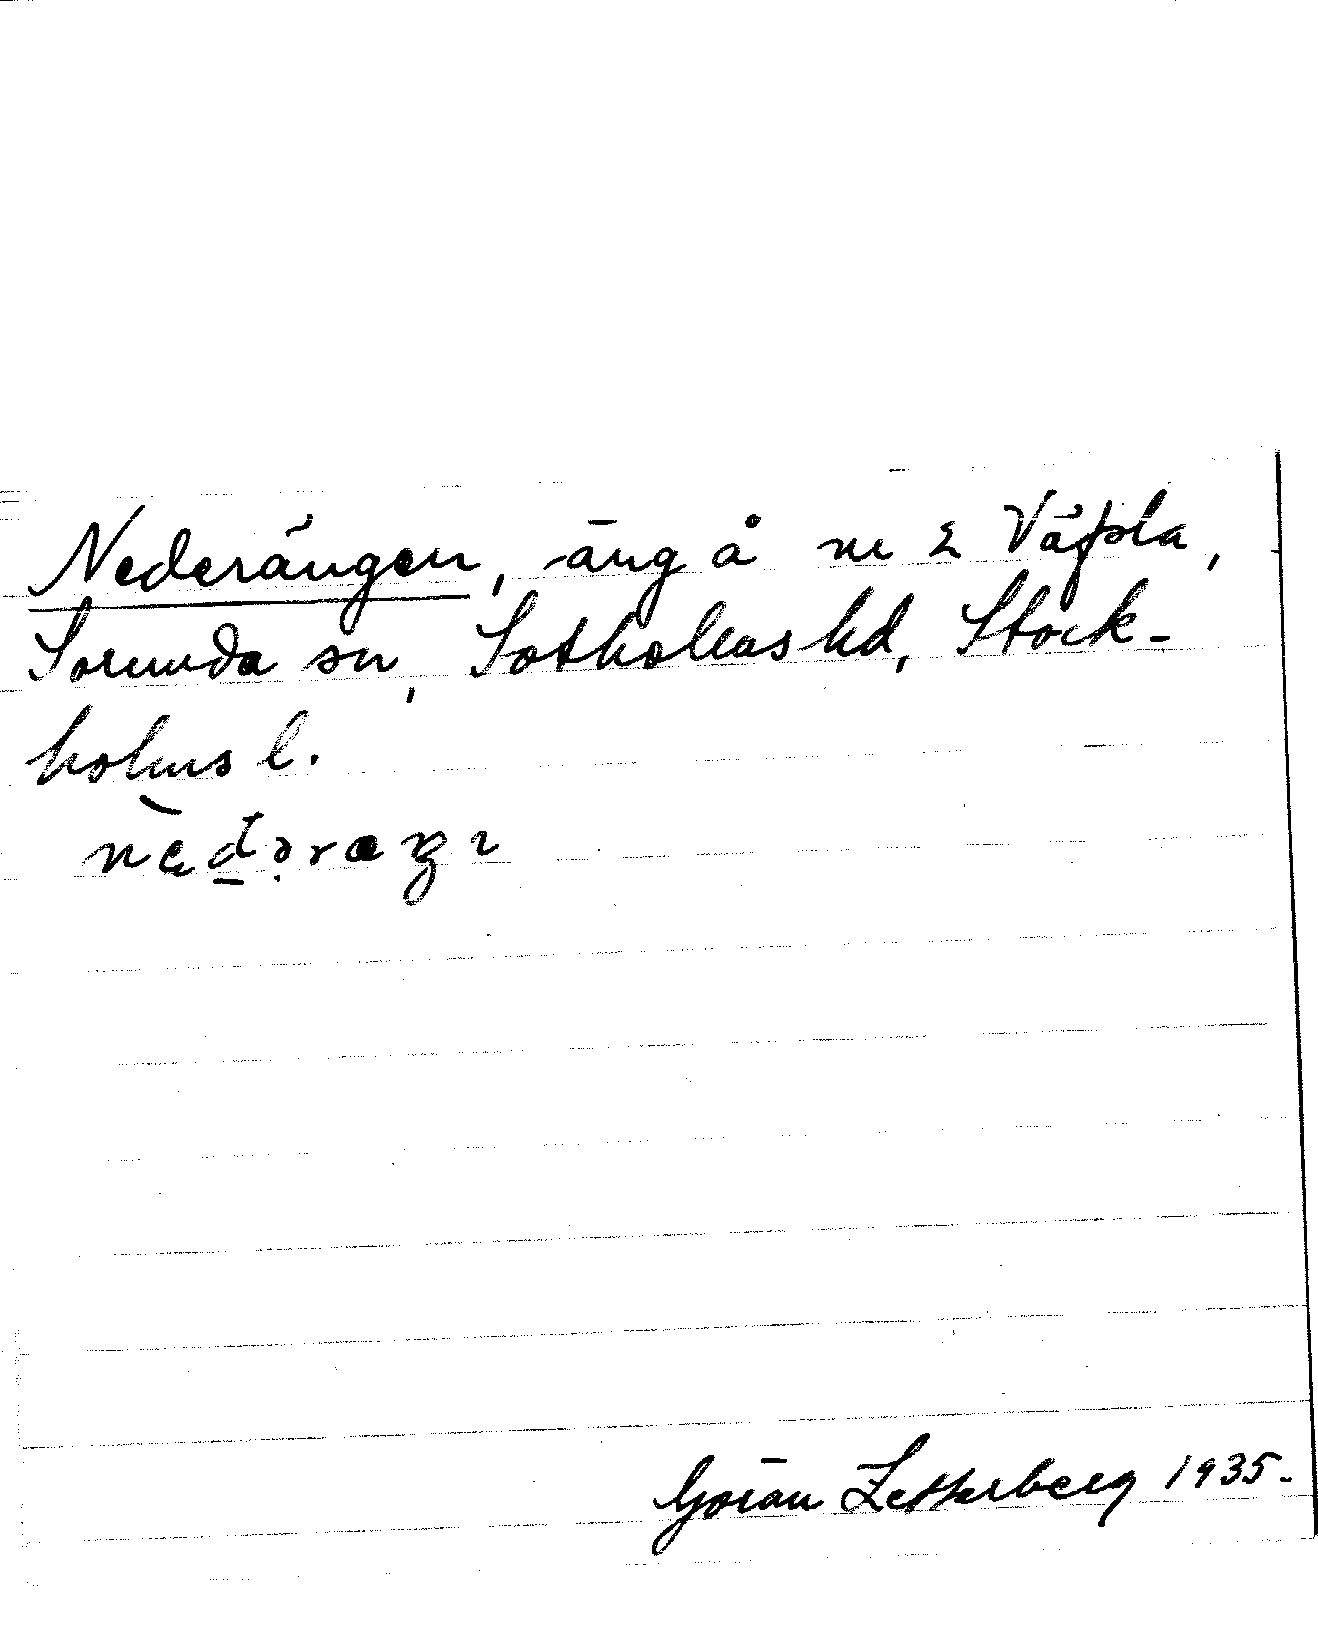 Nederängen, äng å nr 2 Väfsla,
Sorunda sn, Sotholms hd, Stock-
holms l.
Göran Zetterberg 1935.